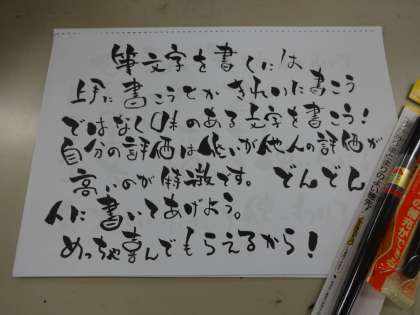 筆文字を書くには
上手に書こうとか きれいに書こう
ではなく口味のある文字を書こう!
自分の評価は低いが他人の評価が
高いのが特徴です。 どんどん
人に書いてあげよう。
めっちゃ喜んでもらえるから!